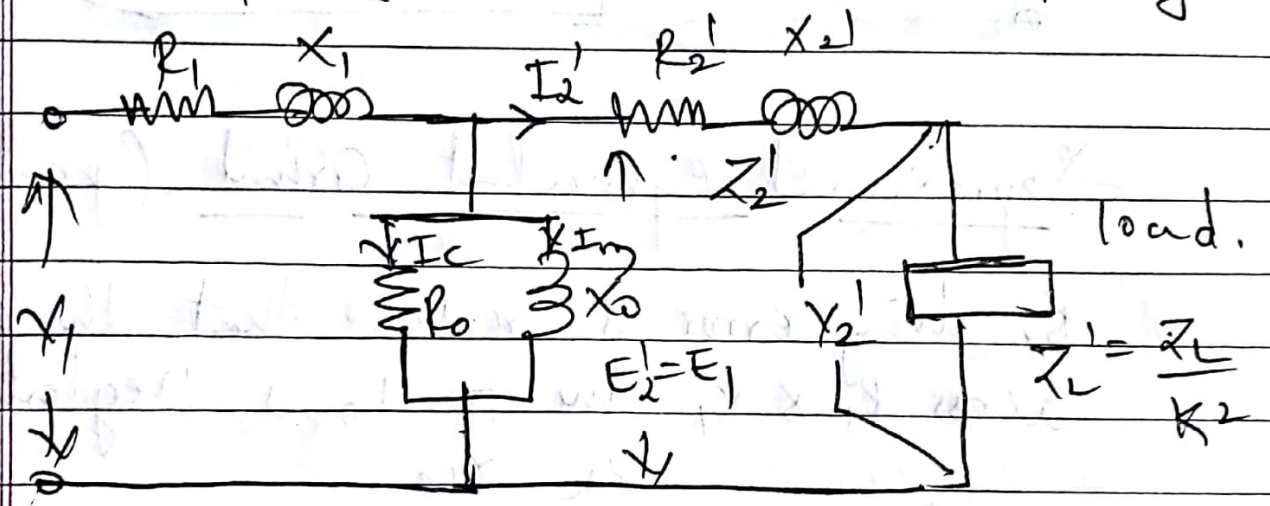 R₁ X₁ I₂' R₂' X₂'
Z₂'
load.
Ic Im
V₁ R₀ X₀ V₂'
E₂' = E₁ Z_L' = Z_L / K²